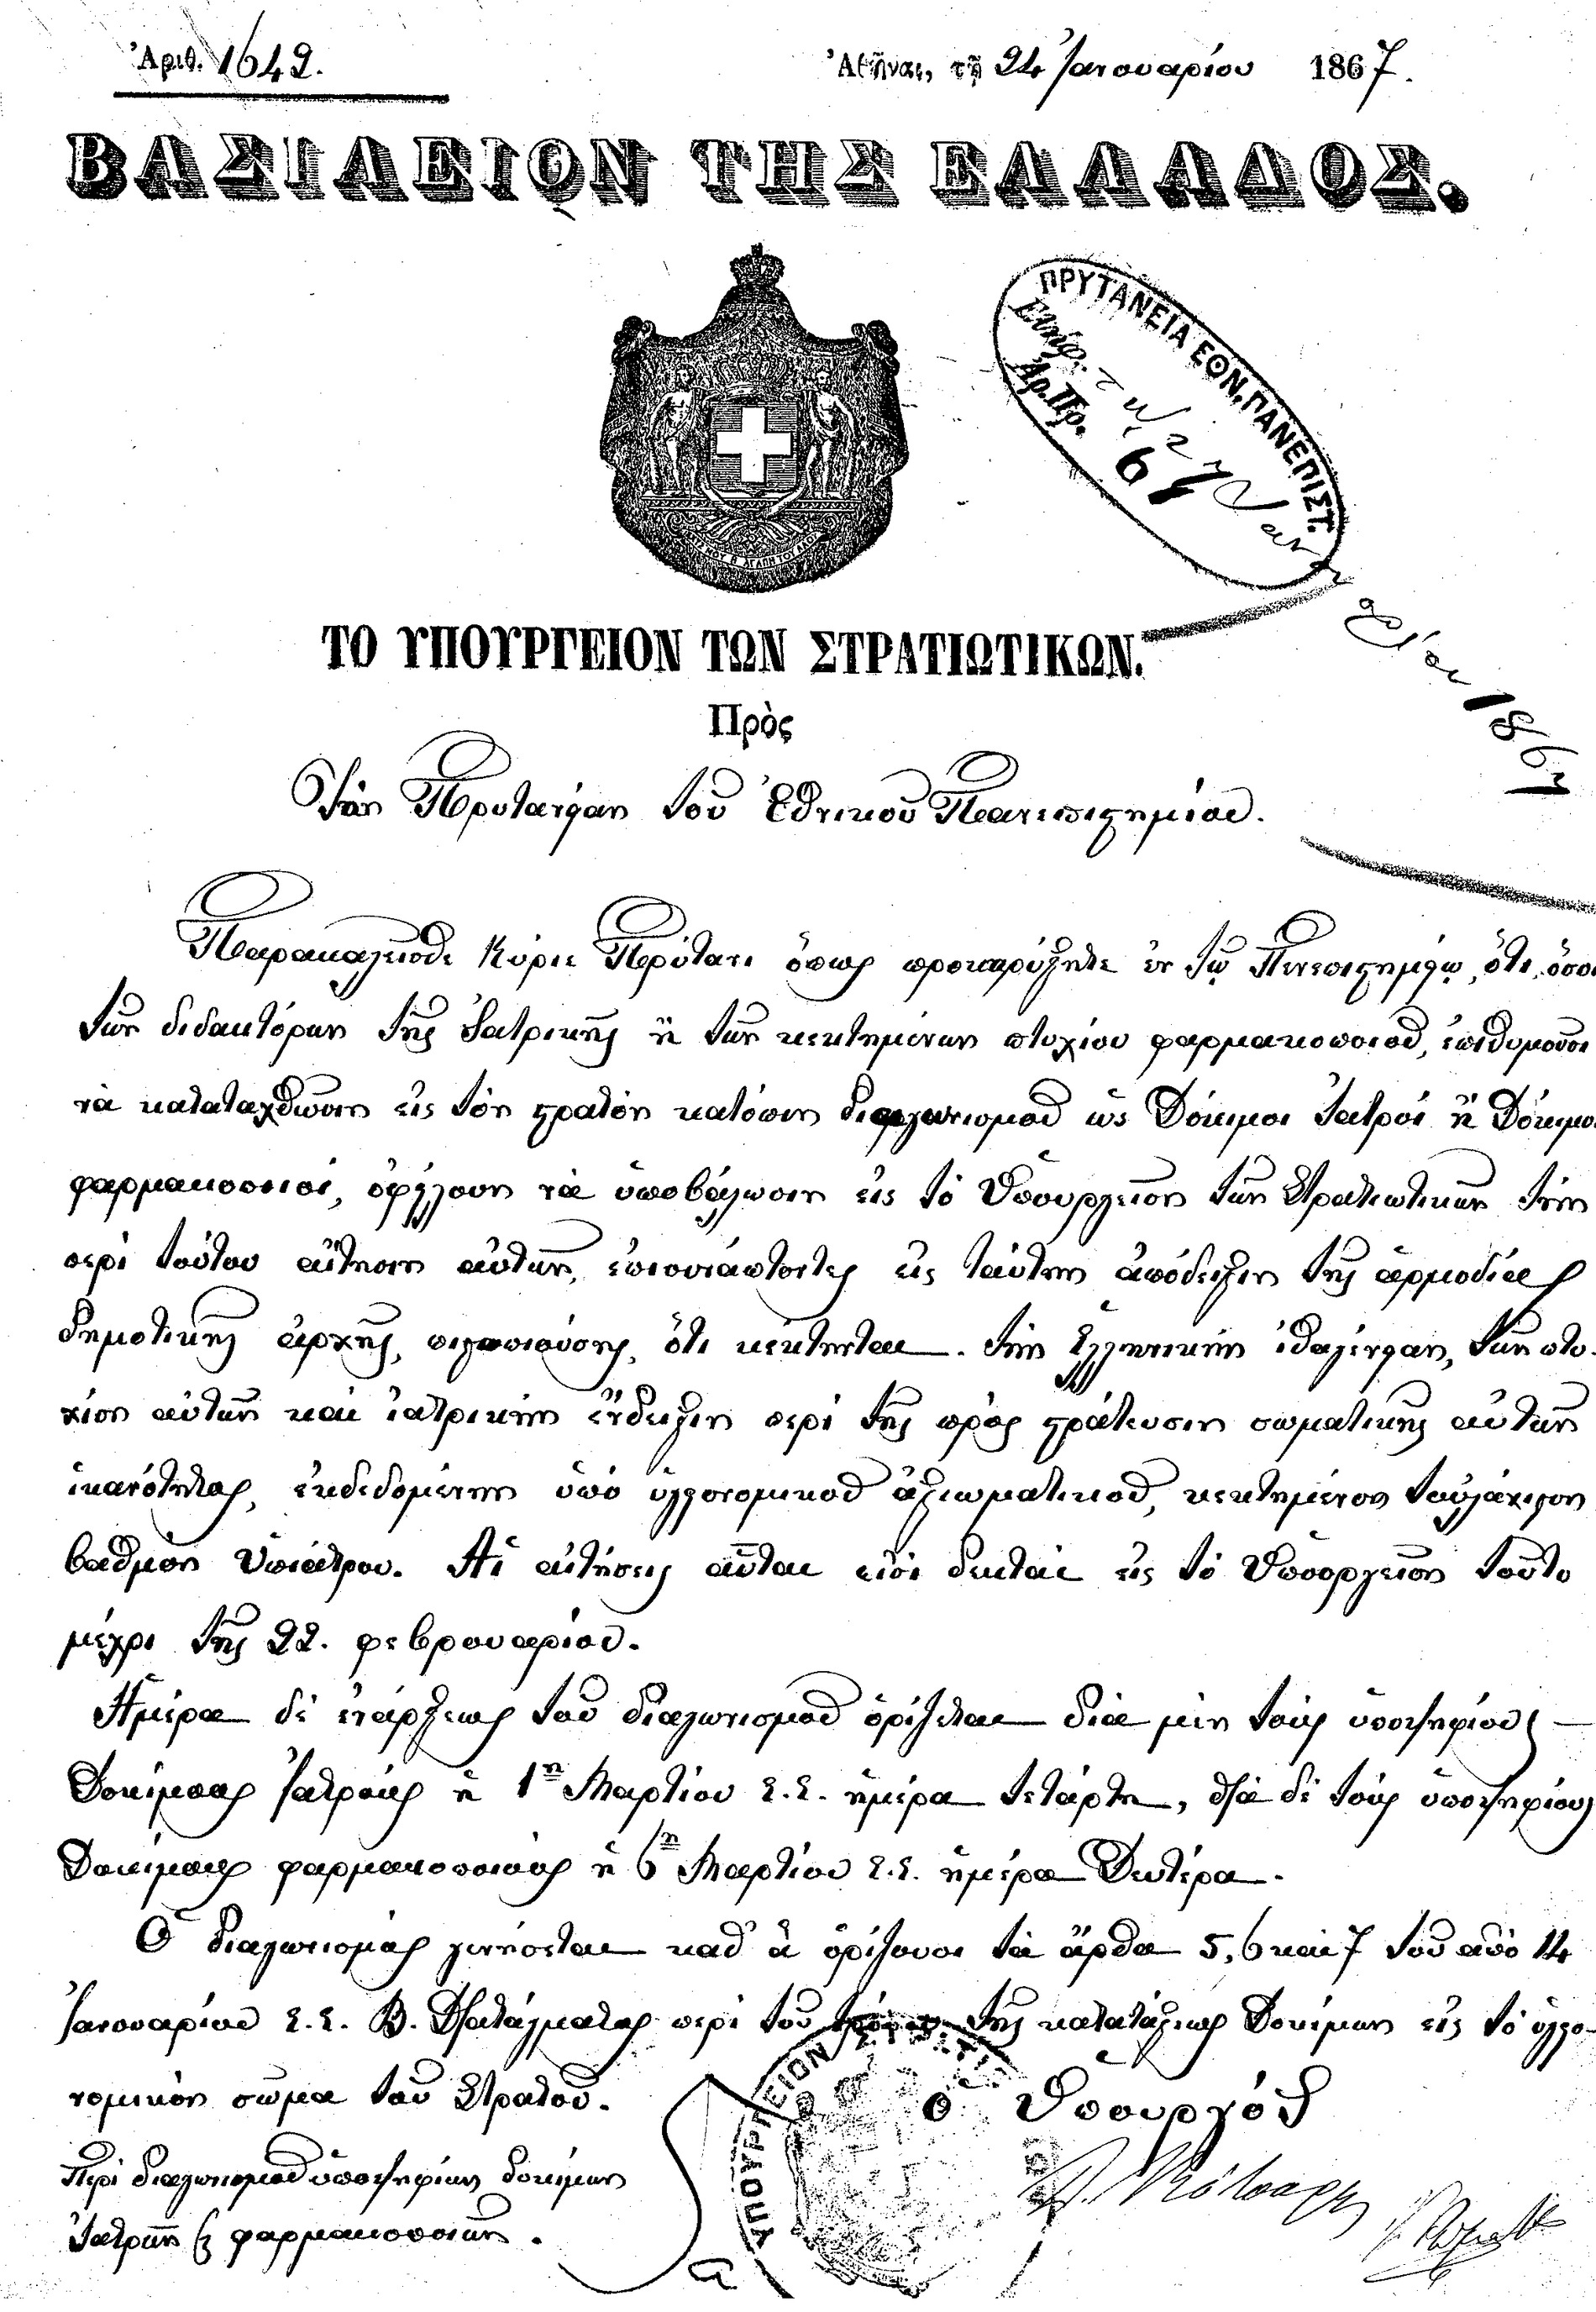 Ἀριθ. 1642.
Ἀθῆναι, τῇ 24 Ἰανουαρίου 1867.
ΒΑΣΙΛΕΙΟΝ ΤΗΣ ΕΛΛΑΔΟΣ.
ΠΡΥΤΑΝΕΙΑ ΕΘΝ. ΠΑΝΕΠΙΣΤ.
Ἀρ. Πρ.
ΤΟ ΥΠΟΥΡΓΕΙΟΝ ΤΩΝ ΣΤΡΑΤΙΩΤΙΚΩΝ.
Πρὸς
Τὸν Πρυτανείαν τοῦ Ἐθνικοῦ Πανεπιστημίου.
Παρακαλεῖσθε Κύριε Πρύτανι ὅπως προκηρύξητε ἐν τῷ Πανεπιστημίῳ, ὅτι ὅσοι
τῶν διδακτόρων τῆς Ἰατρικῆς ἢ τῶν κεκτημένων πτυχίον φαρμακοποιοῦ, ἐπιθυμοῦσι
νὰ καταταχθῶσιν εἰς τὸν στρατὸν κατόπιν διαγωνισμοῦ ὡς Δόκιμοι Ἰατροί ἢ Δόκιμοι
φαρμακοποιοί, ὀφείλουν νὰ ὑποβάλωσιν εἰς τὸ Ὑπουργεῖον τῶν Στρατιωτικῶν τὴν
περὶ τούτου αἴτησιν αὐτῶν, ἐπισυνάπτοντες εἰς ταύτην ἀπόδειξιν τῆς ἁρμοδίας
δημοτικῆς ἀρχῆς, πιστοποιούσης, ὅτι κέκτηνται τὴν Ἑλληνικὴν ἰθαγένειαν, τὸ πτυ-
χίον αὐτῶν καὶ ἰατρικὴν ἔνδειξιν περὶ τῆς πρὸς στράτευσιν σωματικῆς αὐτῶν
ἱκανότητος, ἐκδεδομένην ὑπὸ ὑγειονομικοῦ ἀξιωματικοῦ, κεκτημένου τοὐλάχιστον
βαθμὸν Ὑπιάτρου. Αἱ αἰτήσεις αὗται εἰσὶ δεκταὶ εἰς τὸ Ὑπουργεῖον τοῦτο
μέχρι τῆς 22. φεβρουαρίου.
Ἡμέρα δὲ ἐνάρξεως τοῦ διαγωνισμοῦ ὁρίζεται διὰ μὲν τοὺς ὑποψηφίους
Δοκίμους Ἰατροὺς ἡ 1η Μαρτίου ἐ.ἐ. ἡμέρα τετάρτη, διὰ δὲ τοὺς ὑποψηφίους
Δοκίμους φαρμακοποιοὺς ἡ 6η Μαρτίου ἐ.ἐ. ἡμέρα Δευτέρα.
Ὁ διαγωνισμὸς γενήσεται καθ' ἃ ὁρίζουσι τὰ ἄρθρα 5, 6 καὶ 7 τοῦ ἀπὸ 14
Ἰανουαρίου ἐ.ἐ. Β. Διατάγματος περὶ τοῦ τρόπου τῆς κατατάξεως Δοκίμων εἰς τὸ ὑγειο-
νομικὸν σῶμα τοῦ Στρατοῦ.
Ὁ Ὑπουργός
Περὶ διαγωνισμοῦ ὑποψηφίων δοκίμων
Ἰατρῶν ἢ φαρμακοποιῶν.
Δ. Βότσαρης
ΥΠΟΥΡΓΕΙΟΝ